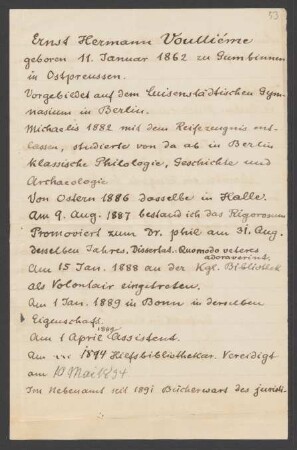 53
Ernst Hermann Voulliéme
geboren 11. Januar 1862 zu Gumbinnen
in Ostpreussen.
Vorgebildet auf dem Luisenstädtischen Gym-
nasium in Berlin.
Michaelis 1882 mit dem Reifezeugnis ent-
lassen, studierte von da ab in Berlin
klassische Philologie, Geschichte und
Archaeologie
Von Ostern 1886 dasselbe in Halle.
Am 9. Aug. 1887 bestand ich das Rigorosum
Promoviert zum Dr. phil am 31. Aug.
desselben Jahres. Dissertat. Quomodo veteres
adoraverint.
Am 15 Jan. 1888 an der Kgl. Bibliothek
als Volontair eingetreten.
Am 1 Jan. 1889 in Bonn in derselben
Eigenschaft.
Am 1 April 1889 Assistent.
Am 1894 Hilfsbibliothekar. Vereidigt
am 10 Mai 1894
Im Nebenamt seit 1891 Bücherwart des juristi-